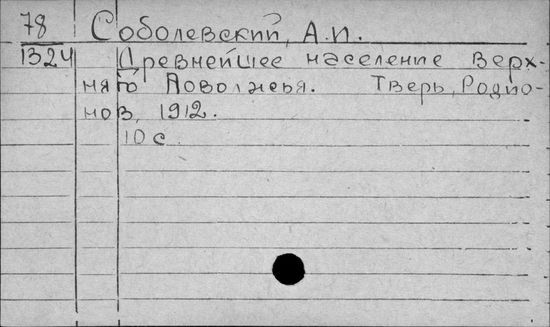 78 Соболевский, А.И.
1324 Древнейшее население Верх-
няго Поволжья. Тверь, Родио-
нов, 1912.
10 с.